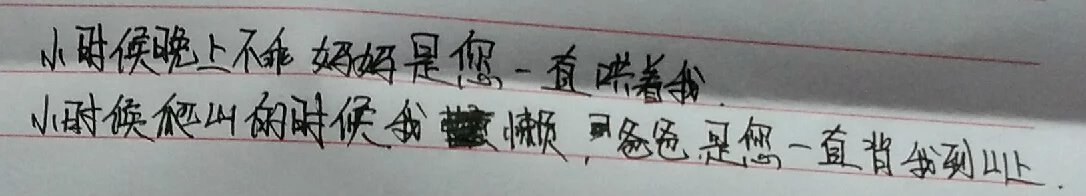 小时候晚上不乖妈妈是您一直哄着我.
小时候爬山的时候我懒,爸爸是您一直背我到山上.